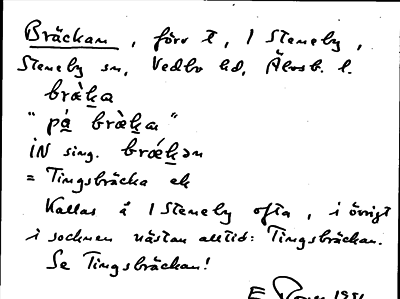 Bräckan, förr t, 1 Steneby,
Steneby sn, Vedbo hd, Älvsb. l.
bræ̀ka
"på bræ̀ka"
IN sing. brǽkən
= Tingsbräcka ek
Kallas å 1 Steneby ofta, i övrigt
i socknen nästan alltid: Tingsbräckan.
Se Tingsbräckan!
E